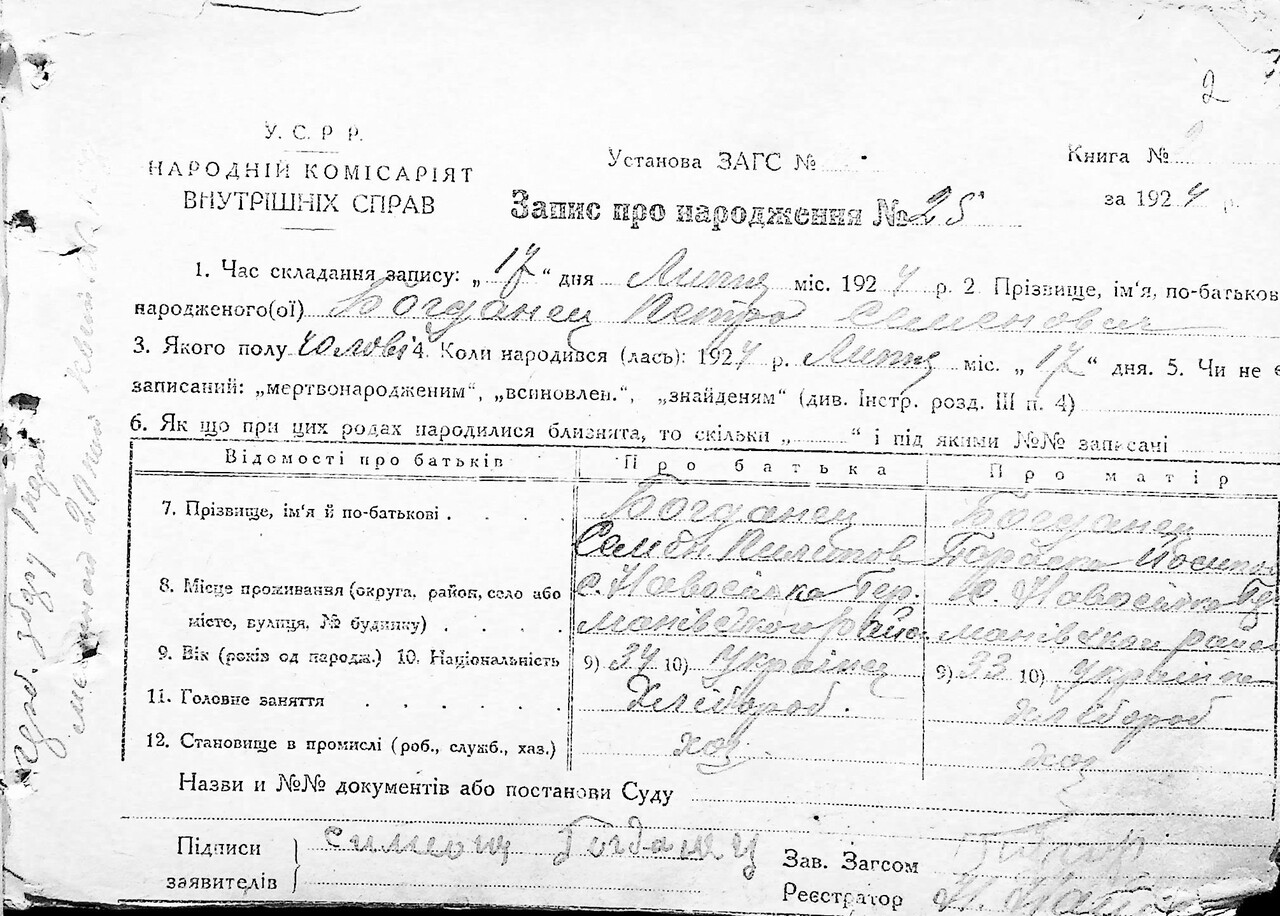 2
У. С. Р Р.
НАРОДНІЙ КОМІСАРІЯТ
ВНУТРІШНІХ СПРАВ
Установа ЗАГС №
Книга №
за 1924 р.
Запис про народження № 25
1. Час складання запису: „17“ дня Липня міс. 1924 р. 2 Прізвище, ім'я, по-батькові
народженого(ої) Богданец Петро Семенович
3. Якого полу чолові 4. Коли народився (лась): 1924 р. Липня міс. „17“ дня. 5. Чи не є
записаний: „мертвонародженим“, „всиновлен.“, „знайденям“ (див. Інстр. розд. III п. 4)
6. Як що при цих родах народилися близнята, то скільки „ “ і під якими №№ записані
Відомості про батьків Про батька Про матір
7. Прізвище, ім'я й по-батькові Богданец Богданец
Семен Пилипов
8. Місце проживання (округа, район, село або с. Навосілка Гер. С. Навосілка Гер
місто, вулиця, № будинку) манівского район манівской район
9. Вік (років од народж.) 10. Національність 9) 34 10) Украінец 9) 33 10) Украінка
11. Головне заняття хлібороб. хлібороб
12. Становище в промислі (роб., служб., хаз.) хоз хоз
Назви и №№ документів або постанови Суду
Підписи
заявителів
Зав. Загсом
Реєстратор